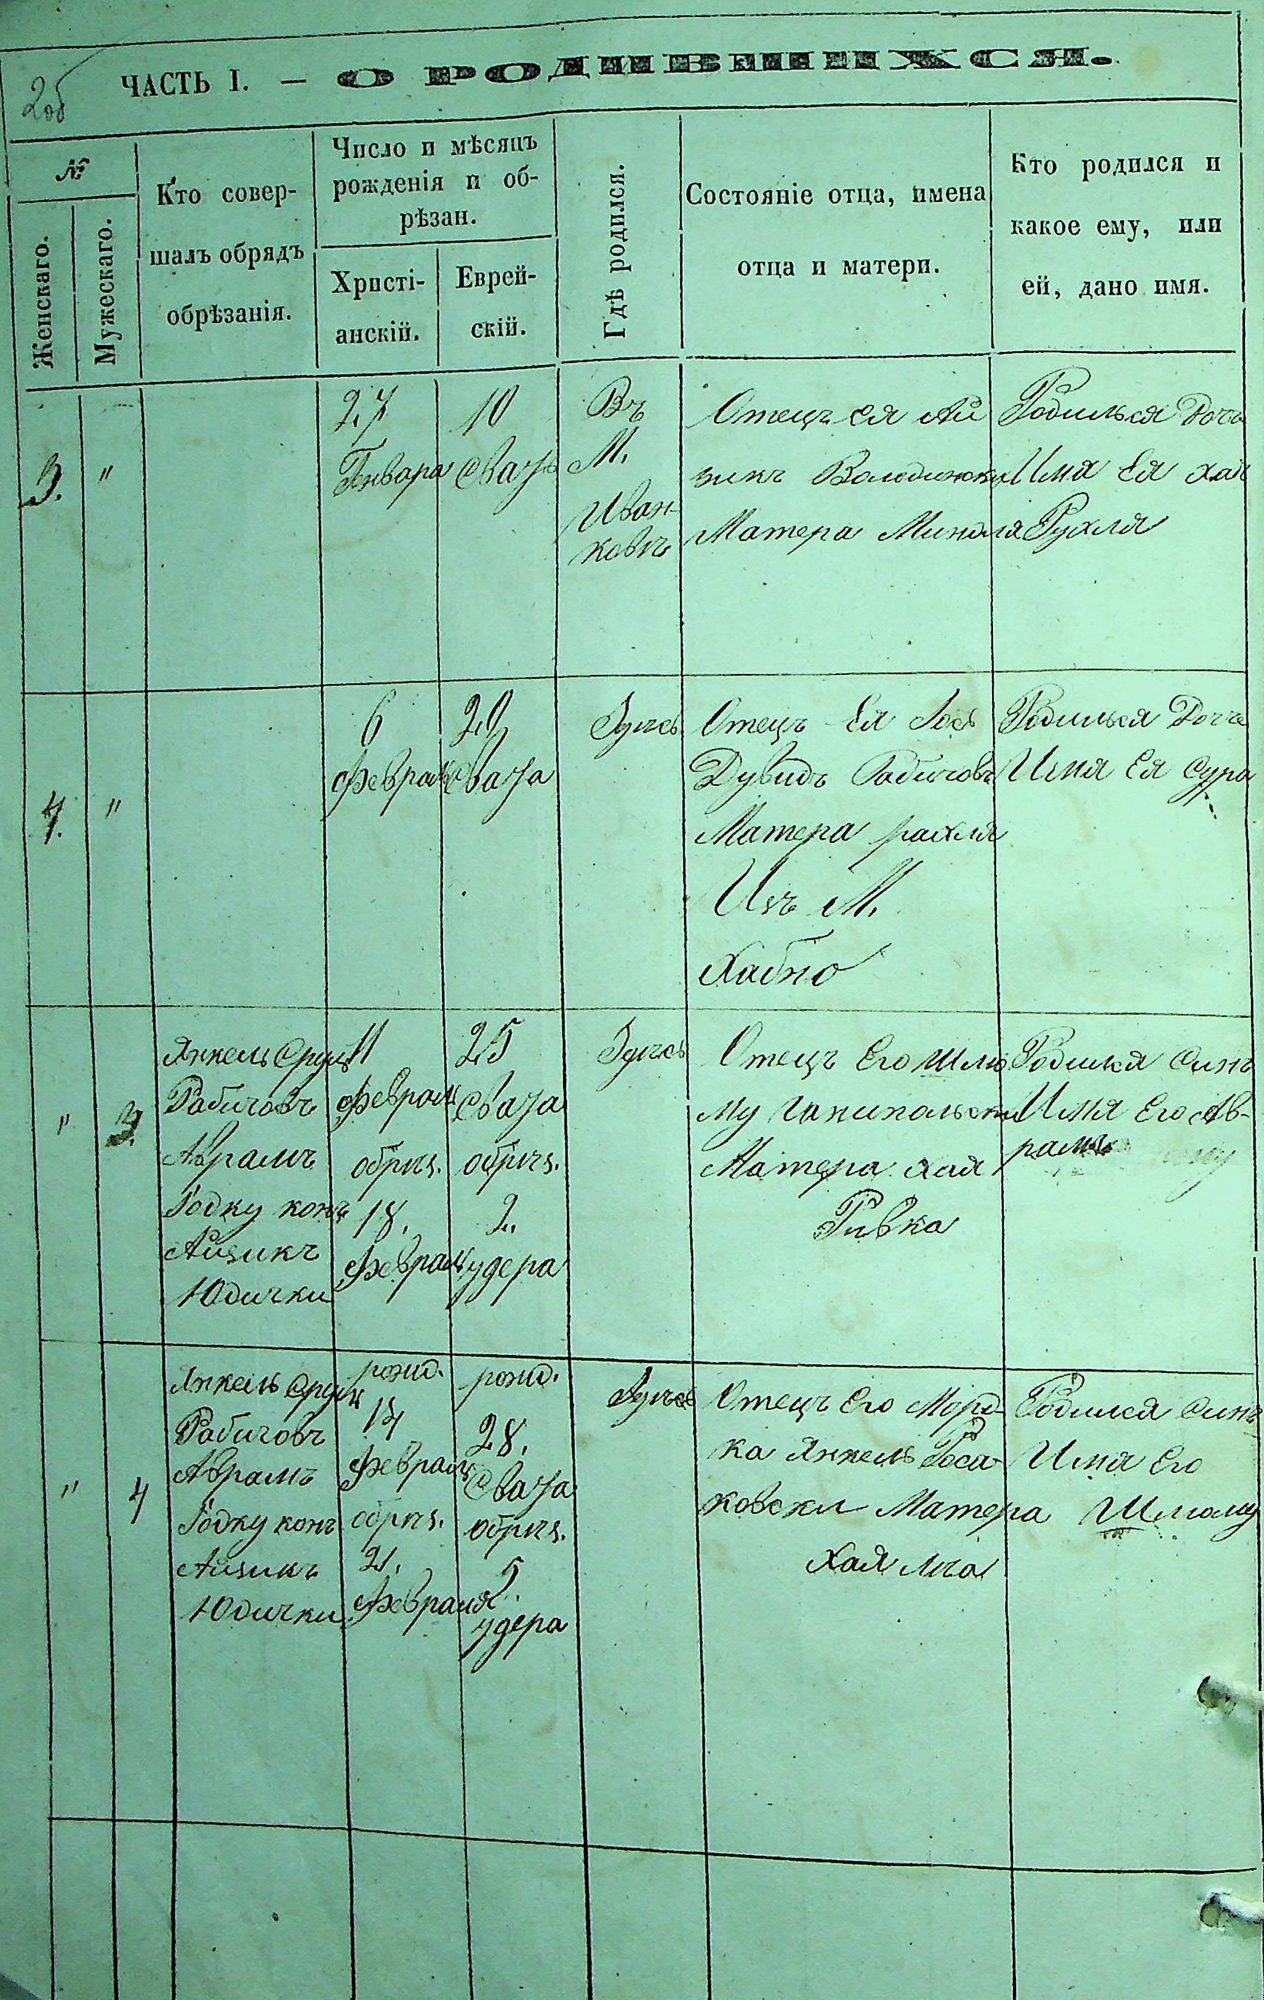 2об
ЧАСТЬ I. — О РОДИВШИХСЯ.
№
Женскаго.
Мужескаго.
Кто совер-
шалъ обрядъ
обрѣзанія.
Число и мѣсяцъ
рожденія и об-
рѣзан.
Христі-
анскій.
Еврей-
скій.
Гдѣ родился.
Состояніе отца, имена
отца и матери.
Кто родился и
какое ему, или
ей, дано имя.
3.
"
27
Генвара
10
Свата
Въ
М.
Иван-
ковъ
Отецъ Ея Ай
зикъ
Матера
Родилься Дочъ
Имя Ея Хая
Рухля
4.
"
6
Февраль
20
Свата
Отецъ Ея Іось
Дувидъ Рабичовъ
Матера рахля
Изъ М.
Хабно
Родилься Дочъ
Имя Ея Сура
"
3.
Янкель Сруль
Рабичовъ
Аврамъ
Годку конъ
Айзикъ
Юдички
11
Февраль
обрѣз.
18.
Февраль
25
Свата
обрѣз.
2.
удера
Отецъ Его Шлю
му
Матера Хая
Ривка
Родился Синъ
Имя Его Ав-
рамъ
"
4
Янкель Срулъ
Рабичовъ
Аврамъ
Годку конъ
Айзикъ
Юдички
рожд.
14
Февраль
обрѣз.
21.
Февраля
рожд.
28.
Свата
обрѣз.
5.
удера
Отецъ Его Морд-
ка Янкель Роса-
ковски Матера
Хая
Родился Синъ
Имя Его
Шлюму